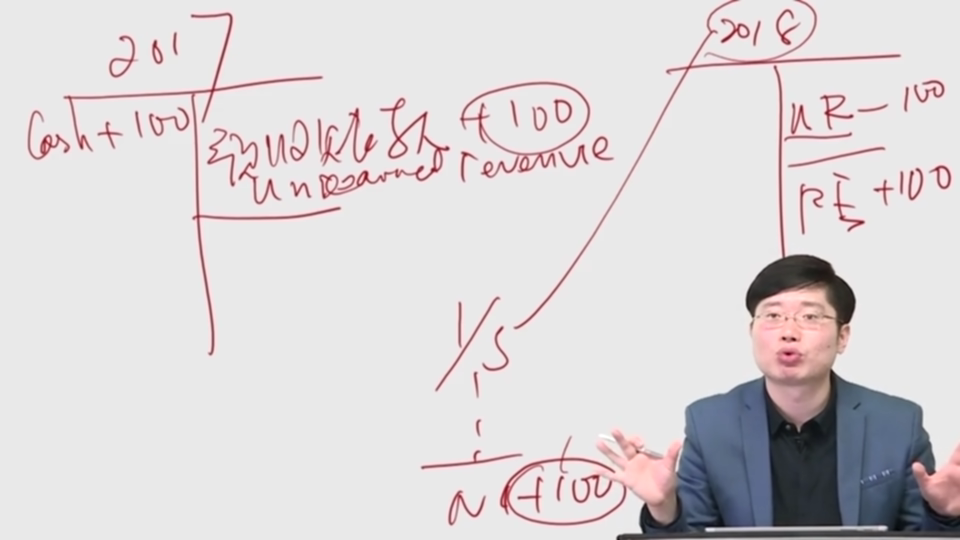 2017
Cash +100
+100
Unearned revenue
2018
UR -100
RE +100
I/S
NI +100